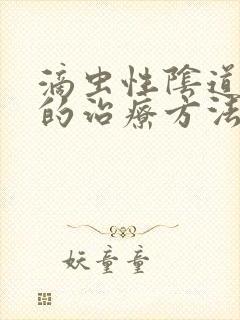 滴虫性陰道
的治療方法
妖童童